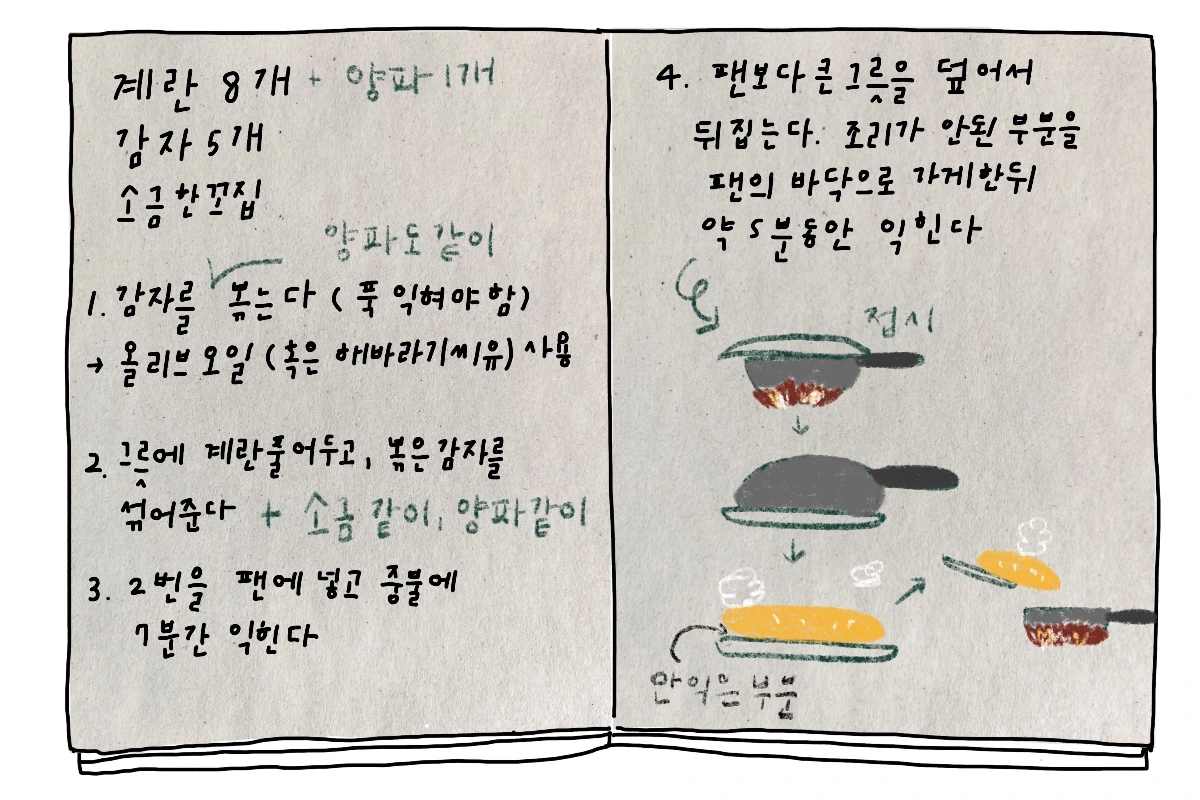 계란 8개 + 양파 1개
감자 5개
소금 한꼬집
양파도같이
1. 감자를 볶는다 (푹 익혀야 함)
→ 올리브오일 (혹은 해바라기씨유) 사용
2. 그릇에 계란풀어두고, 볶은감자를
섞어준다 + 소금 같이, 양파같이
3. 2번을 팬에 넣고 중불에
7분간 익힌다
4. 팬보다 큰 그릇을 덮어서
뒤집는다. 조리가 안된 부분을
팬의 바닥으로 가게한뒤
약 5분동안 익힌다
접시
안익은부분